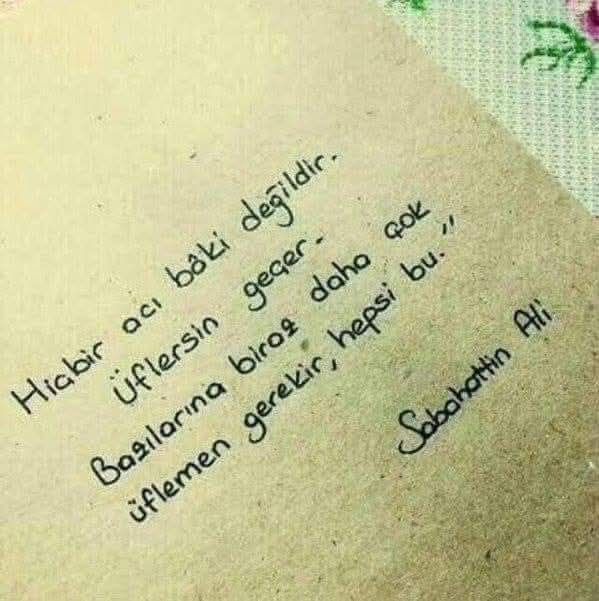 Hiçbir acı bâki değildir.
Üflersin geçer.
Bazılarına biraz daha çok
üflemen gerekir, hepsi bu."
Sabahattin Ali